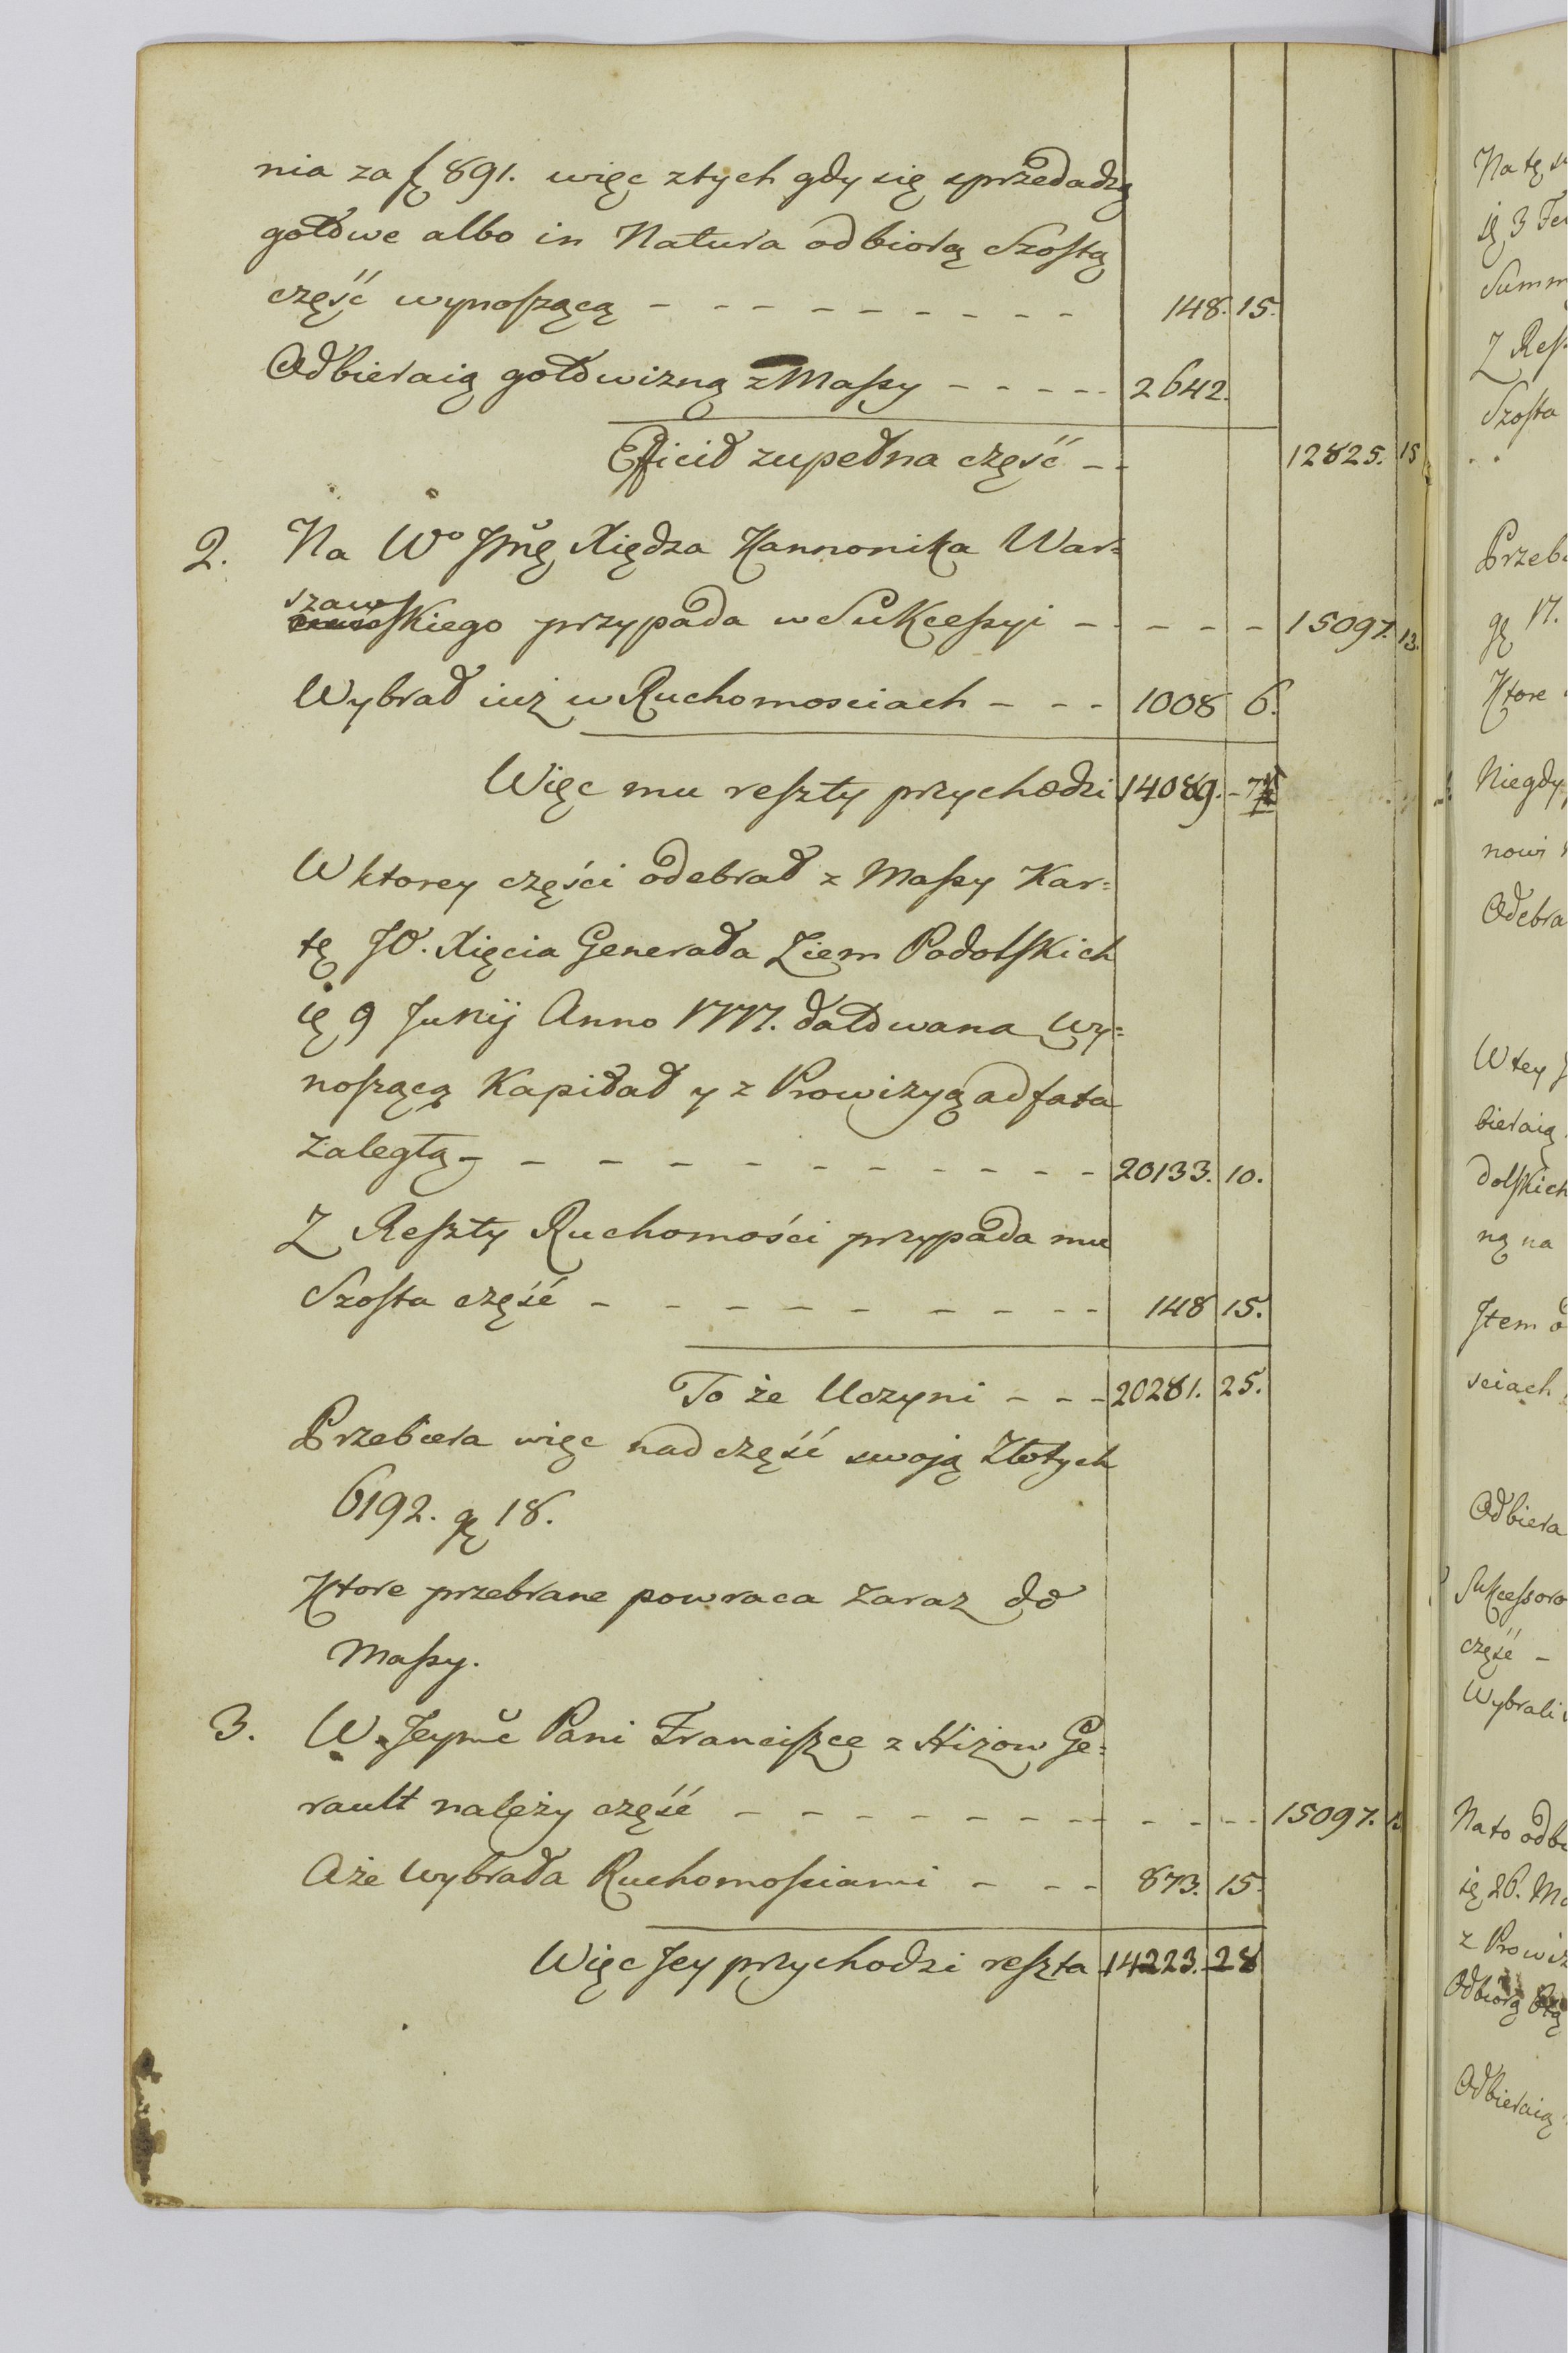 nia za f 891. więc z tych gdy się sprzedadzą
gotowe albo in Natura odbiorą Szostą
część wynoszącą - - - - - - - - - 148. 15.
Odbieraią gotowizną z Massy - - - - - 2642.
Efficit zupełna część - - 12825. 15
2. Na Wo Jmę Xiędza Kannonika War=
szaw
skiego przypada w Sukcessyi - - - - - 15097. 13.
Wybrał iuż w Ruchomosciach - - - 1008 6.
Więc mu reszty przychodzi 14089. - 7
W ktorey części odebrał z Massy Kar=
tę JO. Xięcia Generała Ziem Podolskich
ię 9 Junij Anno 1777. datowana wy=
noszącą Kapitał y z Prowizyą ad fata
zaległą - - - - - - - - - - 20133. 10.
Z Reszty Ruchomości przypada mu
Szosta część - - - - - - - - - 148 15.
To że Uczyni - - - 20281. 25.
Przebiera więc nad część swoją Złotych
6192. gę 18.
Ktore przebrane powraca zaraz do
Massy.
3. W. Jeymć Pani Franciszce z Hizow Ge=
rault należy część - - - - - - - - - - - - 15097. 13
Aże wybrała Ruchomosciami - - - 873. 15.
Więc Jey przychodzi reszta 14223. 28
Na tę
ię 3
Summ
Z Resz
Szosta
Przeb
gę 17.
Ktore
Niegdy
nowi
Odebra
W tey
bieraią
dolskich
ną na
Item
sciach
Odbiera
Sukcessoro
część -
Wybrali
Na to odb
ię 26. Ma
z Prowiz
Odbiorą
Odbieraią